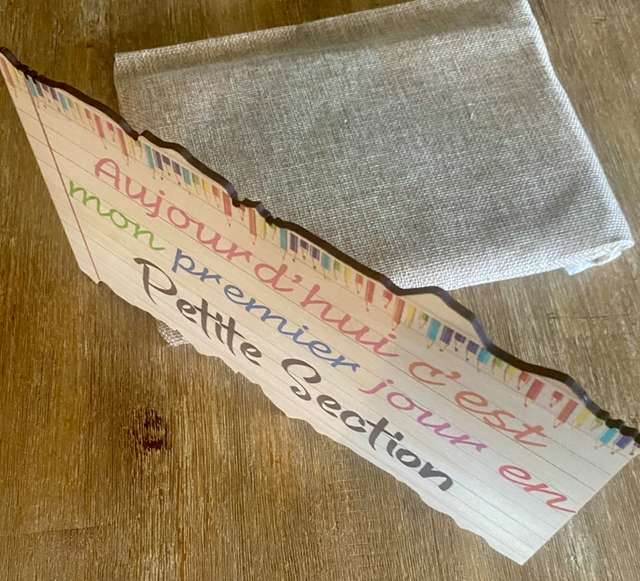 Aujourd'hui c'est
mon premier jour en
Petite Section